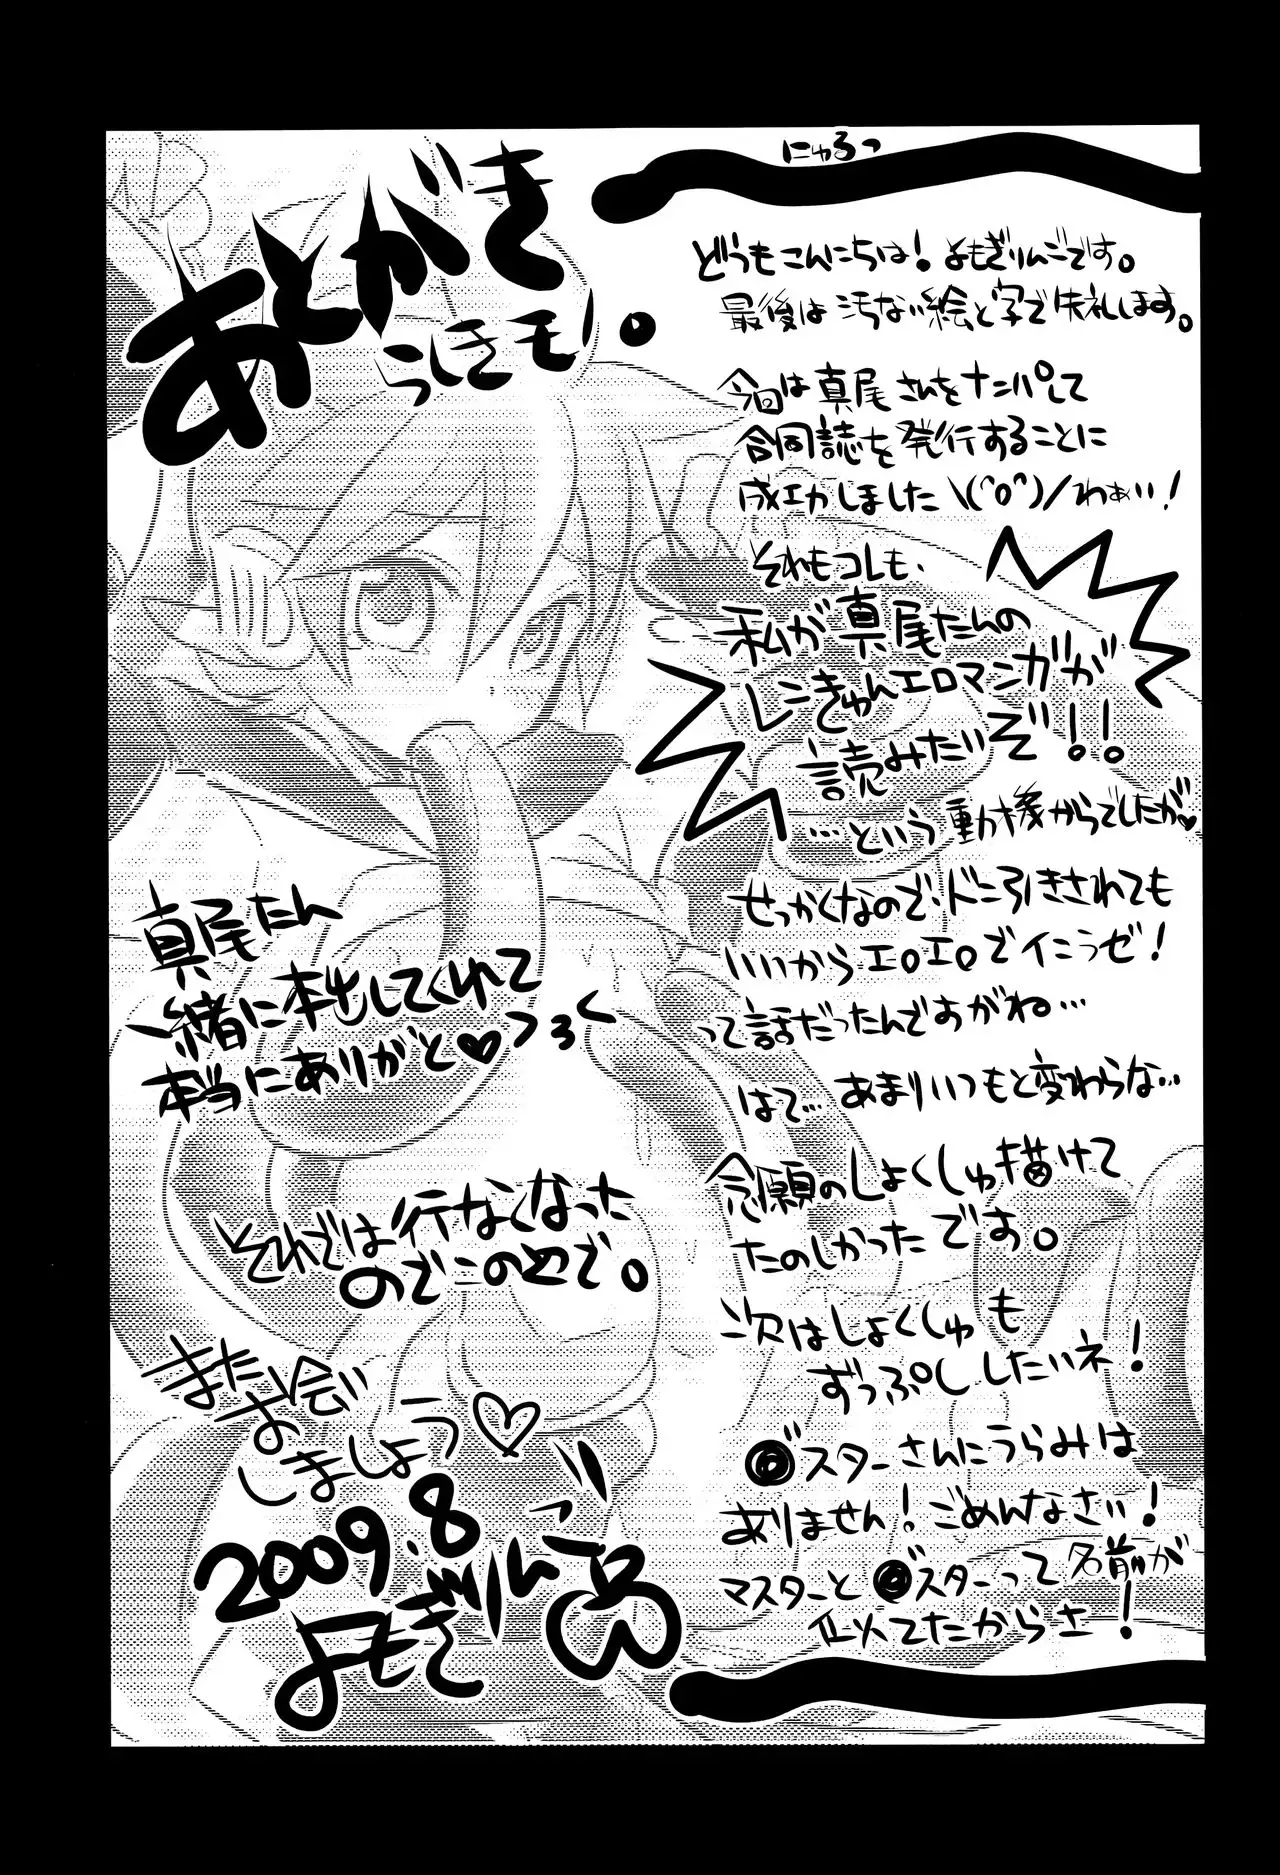 あとがき
らしきモノ。
にゅるっ
どうもこんにちは！よもぎりんごです。
最後は汚ない絵と字で失礼します。
今回は真尾さんをナンパして
合同誌を発行することに
成功しました\(^o^)/わぁい！
それもコレも、
私が真尾たんの
レニきゅんエロマンガが
読みたいぞ！！
…という動機からでしたが♥
せっかくなので、ドン引きされても
いいからエロエロでイこうぜ！
って話だったんですがね…
はて…あまりいつもと変わらな…
念願のしょくしゅ描けて
たのしかったです。
次はしょくしゅも
ずっぷししたいネ！
スターさんにうらみは
ありません！ごめんなさい！
マスターと スターって名前が
似てたからさ！
真尾たん
一緒に本出してくれて
本当にありがと♥
それでは行なくなった
のでこのへで。
また
お会い
しましょう♡
2009.8
よもぎりんご